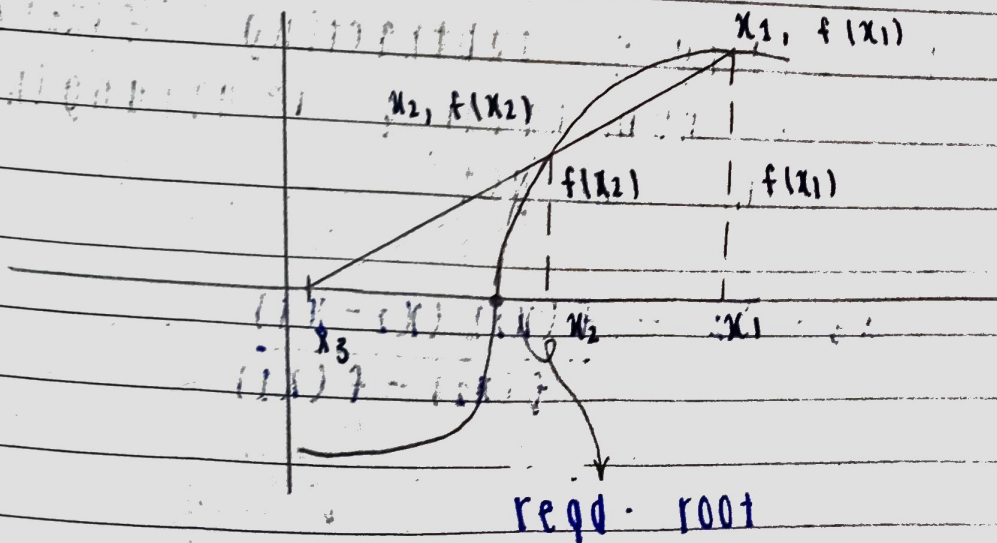 x1, f(x1)
x2, f(x2)
f(x2) f(x1)
x3 x2 x1
reqd. root